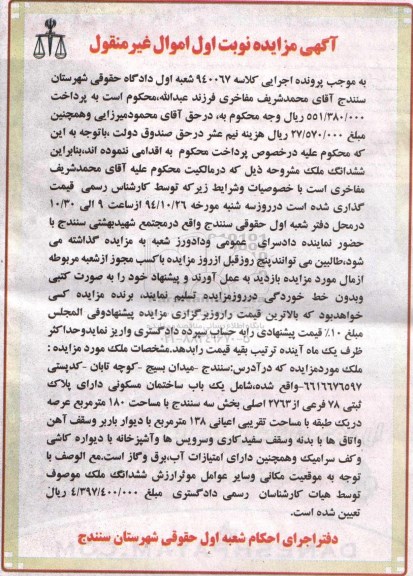 آگهی مزایده نوبت اول اموال غیر منقول
به موجب پرونده اجرایی کلاسه ۹۴۰۰۶۷ شعبه اول دادگاه حقوقی شهرستان
سنندج آقای محمدشریف مفاخری فرزند عبدالله،محکوم است به پرداخت
۵۵۱/۳۸۰/۰۰۰ ریال وجه محکوم به، درحق آقای محمودمیرزایی وهمچنین
مبلغ ۲۷/۵۷۰/۰۰۰ ریال هزینه نیم عشر درحق صندوق دولت ،باتوجه به این
که محکوم علیه درخصوص پرداخت محکوم به اقدامی ننموده اند،بنابراین
ششدانگ ملک مشروحه ذیل که درمالکیت محکوم علیه آقای محمدشریف
مفاخری است با خصوصیات وشرایط زیرکه توسط کارشناس رسمی قیمت
گذاری شده است درروزسه شنبه مورخه ۹۴/۱۰/۲۶ ازساعت ۹ الی ۱۰/۳۰
درمحل دفتر شعبه اول حقوقی سنندج واقع درمجتمع شهیدبهشتی سنندج با
حضور نماینده دادسرای عمومی ودادورز شعبه به مزایده گذاشته می
شود،طالبین می توانندپنج روزقبل ازروز مزایده باکسب مجوز ازشعبه مربوطه
ازمال مورد مزایده بازدید به عمل آورند و پیشنهاد خود را به صورت کتبی
وبدون خط خوردگی درروزمزایده تسلیم نمایند. برنده مزایده کسی
خواهدبود که بالاترین قیمت راروزبرگزاری مزایده پیشنهادوفی المجلس
مبلغ ۱۰٪ قیمت پیشنهادی رابه حساب سپرده دادگستری واریز نمایدوحداکثر
ظرف یک ماه آینده ترتیب بقیه قیمت رابدهد.مشخصات ملک مورد مزایده :
ملک موردمزایده که درآدرس:سنندج -میدان بسیج -کوچه تابان -کدپستی
۶۶۱۶۶۷۶۵۹۷-واقع شده،شامل یک باب ساختمان مسکونی دارای پلاک
ثبتی ۷۸ فرعی از۲۷۶۳ اصلی بخش سه سنندج با مساحت ۱۸۰ مترمربع عرصه
دریک طبقه با مساحت تقریبی اعیانی ۱۳۸ مترمربع با دیوار باربر وسقف آهن
واتاق ها با بدنه وسقف سفیدکاری وسرویس ها وآشپزخانه با دیواره کاشی
وکف سرامیک وهمچنین دارای امتیازات آب،برق وگاز است.مع الوصف با
توجه به موقعیت مکانی وسایر عوامل موثرارزش ششدانگ ملک موصوف
توسط هیات کارشناسان رسمی دادگستری مبلغ ۴/۳۹۷/۴۰۰/۰۰۰ ریال
تعیین شده است.
دفتراجرای احکام شعبه اول حقوقی شهرستان سنندج